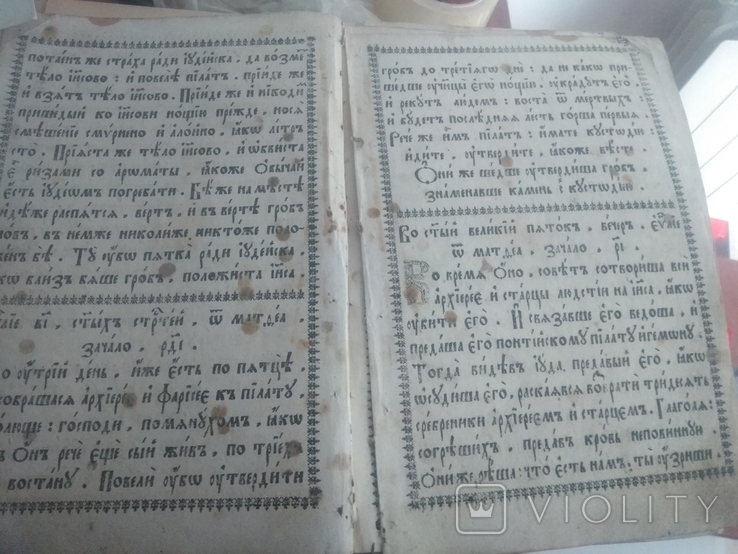 потаен же страха ради іудейска . да возме
тѣло іисово : и повелѣ пілат . прїиде же
и взят тѣло іисово . Прїиде же и нїкодим
пришедый ко іисови нощїю прежде . нося
смѣшенїе смирнино и алойно , ꙗкѡ літръ
сто . Прїяста же тѣло іисово , и ѡбвиста
е ризами со арѡматы , ꙗкоже ѡбычай
есть іудеѡм погребати . Бѣ же на мѣстѣ
идѣже распятся . вертъ , и в вертѣ гроб
нов . в немже николиже никтоже поло
жен бѣ . Тѹ ѹбѡ пятка ради іудейска ,
ꙗкѡ близ бяше гроб . положиста іиса .
вї . стыхъ страстей . ѿ матѳеа .
зачало . рдї .
Во ѹтрїй день , иже есть по пятцѣ .
собрашася архїерее и фарїсее къ пілату ,
глаголюще : господи , помянухом , ꙗкѡ
Он рече еще сый жив , по трїех
востану . Повели ѹбѡ ѹтвердити
гроб до третїягѡ дне : да не какѡ при
шедше ѹченицы егѡ нощїю . ѹкрадут его .
и рекут людем : воста ѿ мертвых
и будет послѣдняя лесть горша первыя .
Рече же им пілат : имате кустодїю :
идите . ѹтвердите . ꙗкоже вѣсте
Они же шедше ѹтвердиша гроб .
знаменавше камень с кустодїею
Во стый великїй пяток . вечер . еѵлїе
ѿ матѳеа зачало . рї .
Во время Оно . совѣт сотвориша вси
архїерее и старцы людстїи на іиса , ꙗкѡ
ѹбити его . И связавше его ведоша , и
предаша его понтїйскому пілату игемѡну
Тогда видѣв іуда , предавый его , ꙗкѡ
ѡсудиша его , раскаявся возврати тридесять
сребреники архїереем и старцем . Глаголя :
согрѣших . предав кровь неповинную
Они же рѣша : что есть нам , ты ѹзриши
VIOLITY